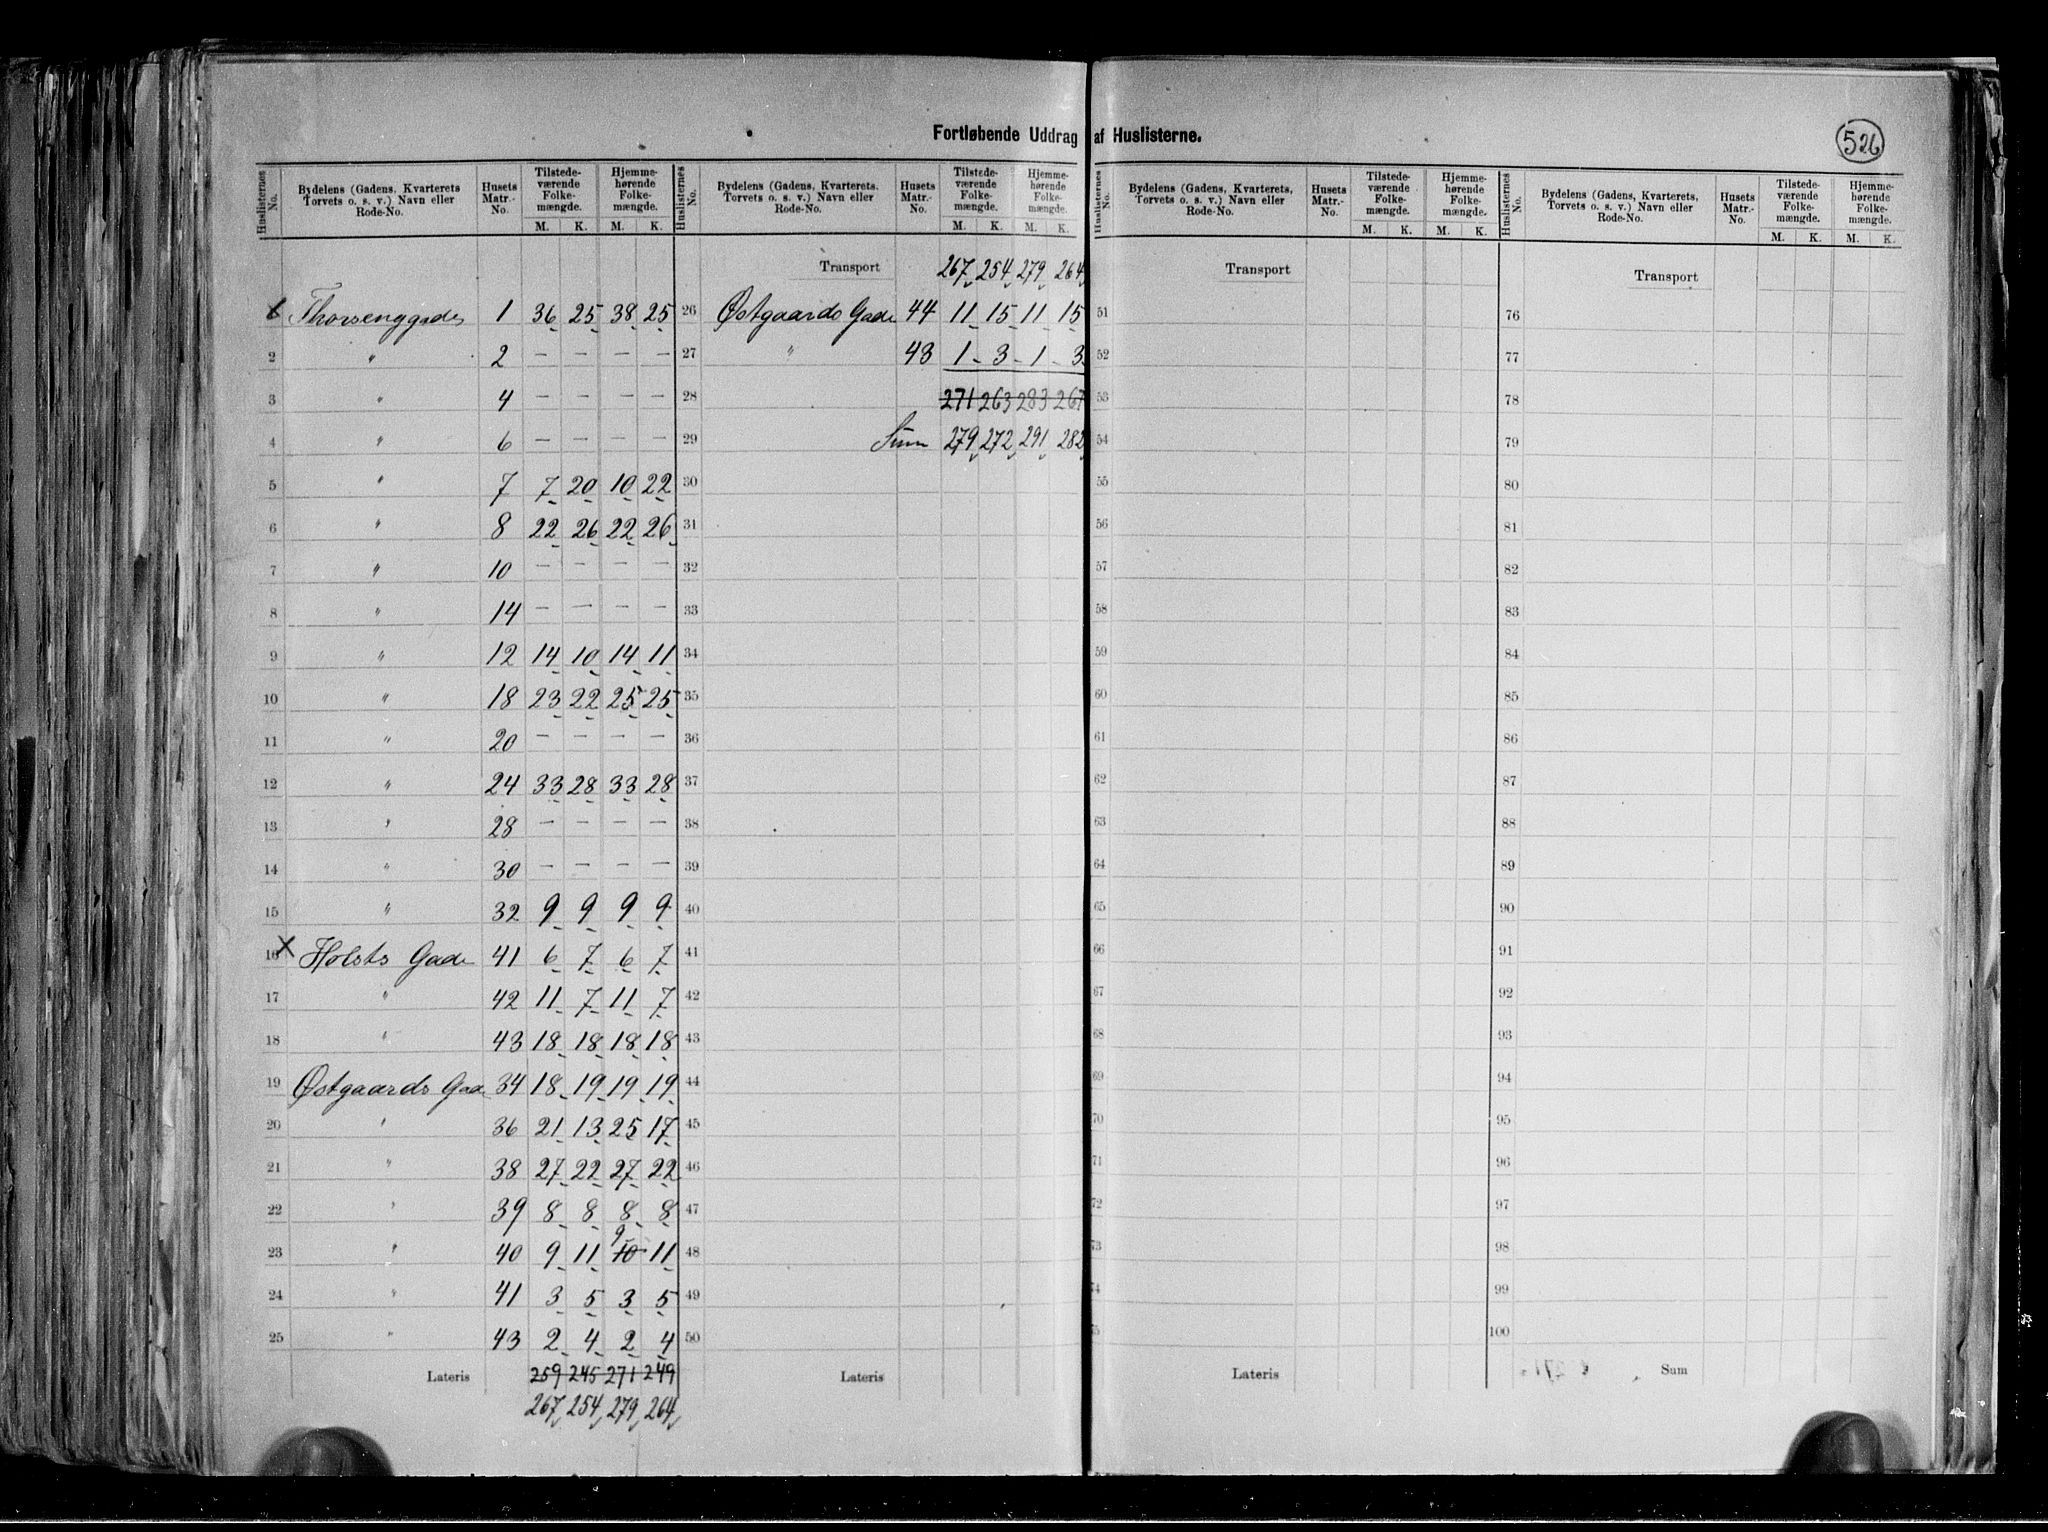 Fortløbende Uddrag af Huslisterne.
526
Huslisternes No. | Bydelens (Gadens, Kvarterets Torvets o. s. v.) Navn eller Rode-No. | Husets Matr.-No. | Tilstedeværende Folkemængde. M. K. | Hjemmehørende Folkemængde. M. K.
X Thorsenggades 1 36 25 38 25
2 " 2 – – – –
3 " 4 – – – –
4 " 6 – – – –
5 " 7 7 20 10 22
6 " 8 22 26 22 26
7 " 10 – – – –
8 " 14 – – – –
9 " 12 14 10 14 11
10 " 18 23 22 25 25
11 " 20 – – – –
12 " 24 33 28 33 28
13 " 28 – – – –
14 " 30 – – – –
15 " 32 9 9 9 9
16 X Holsts Gade 41 6 7 6 7
17 " 42 11 7 11 7
18 " 43 18 18 18 18
19 Østgaards Gade 34 18 19 19 19
20 " 36 21 13 25 17
21 " 38 27 22 27 22
22 " 39 8 8 8 8
23 " 40 9 11 10 9 11
24 " 41 3 5 3 5
25 " 43 2 4 2 4
Lateris 259 245 271 249
267 254 279 264
Huslisternes No. | Bydelens (Gadens, Kvarterets, Torvets o. s. v.) Navn eller Rode-No. | Husets Matr.-No. | Tilstedeværende Folkemængde. M. K. | Hjemmehørende Folkemængde. M. K.
Transport 267 254 279 264
26 Østgaards Gade 44 11 15 11 15
27 " 43 1 3 1 3
28 271 263 283 267
29 Sum 279 272 291 282
30
31
32
33
34
35
36
37
38
39
40
41
42
43
44
45
46
47
48
49
50
Lateris
Huslisternes No. | Bydelens (Gadens, Kvarterets, Torvets o. s. v.) Navn eller Rode-No. | Husets Matr.-No. | Tilstedeværende Folkemængde. M. K. | Hjemmehørende Folkemængde. M. K.
Transport
51
52
53
54
55
56
57
58
59
60
61
62
63
64
65
66
67
68
69
70
71
72
73
74
75
Lateris
Huslisternes No. | Bydelens (Gadens, Kvarterets, Torvets o. s. v.) Navn eller Rode-No. | Husets Matr.-No. | Tilstedeværende Folkemængde. M. K. | Hjemmehørende Folkemængde. M. K.
Transport
76
77
78
79
80
81
82
83
84
85
86
87
88
89
90
91
92
93
94
95
96
97
98
99
100
Sum